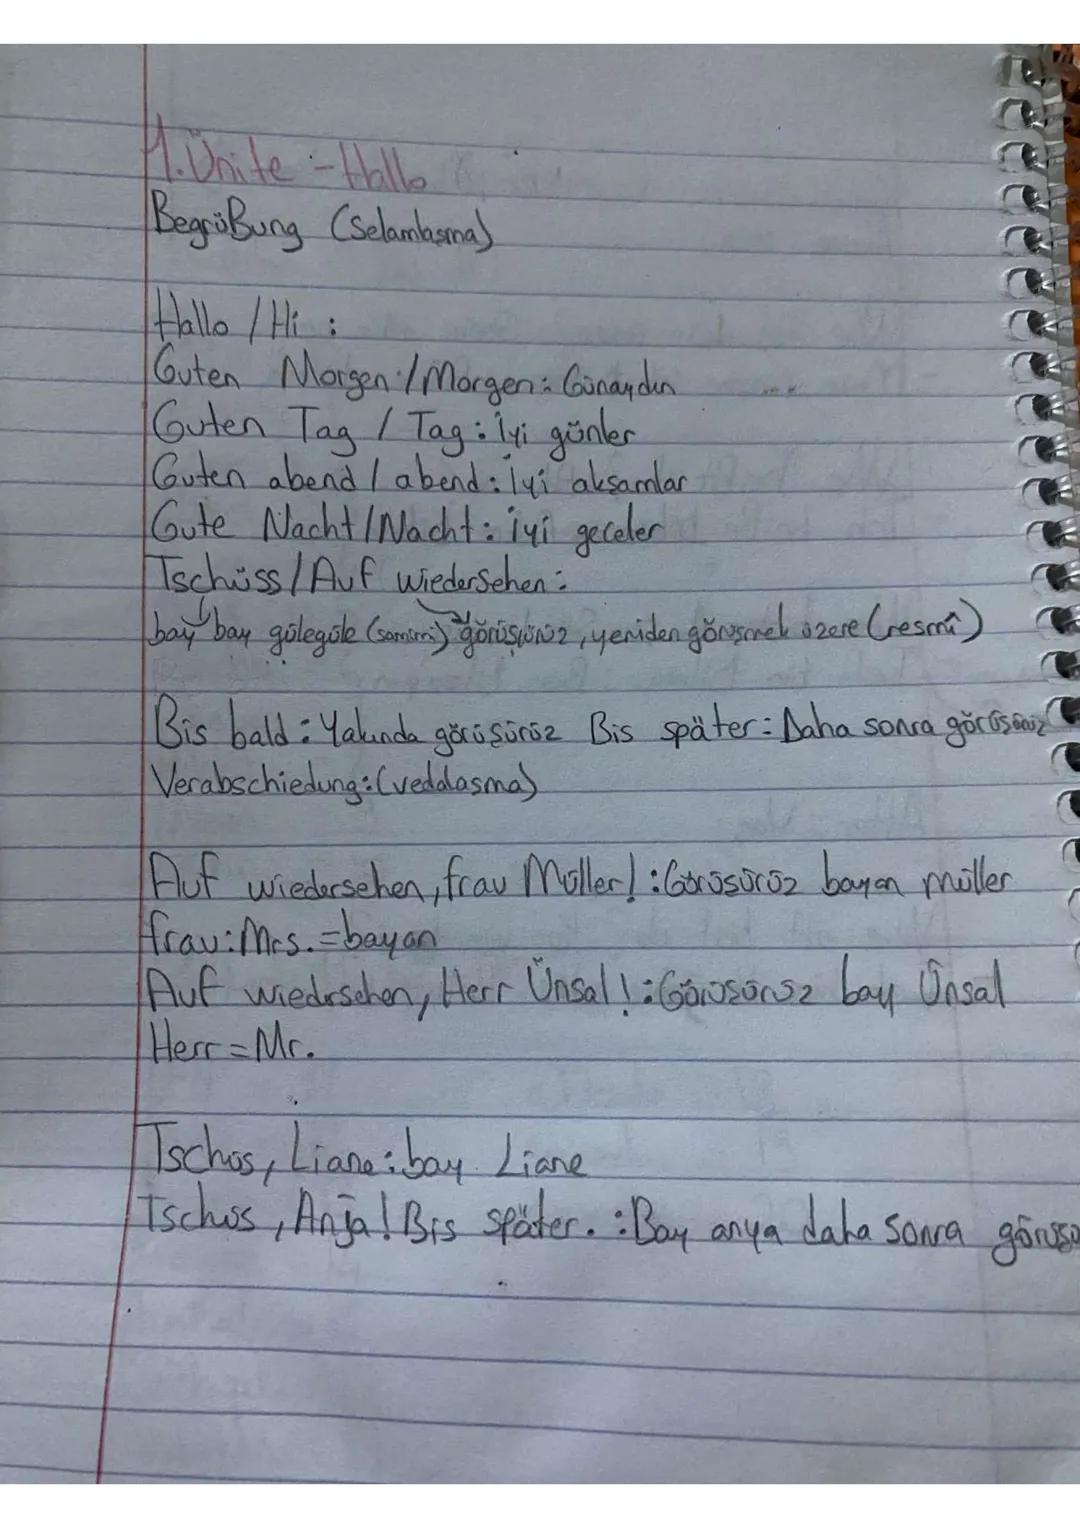 1.Ünite - Hallo
Begrüßung (Selamlasma)
Hallo / Hi :
Guten Morgen / Morgen: Günaydın
Guten Tag / Tag: İyi günler
Guten abend / abend: İyi akşamlar
Gute Nacht / Nacht: iyi geceler
Tschüss / Auf wiedersehen:
bay bay gülegüle (samimi) görüşürüz, yeniden görüşmek üzere (resmî)
Bis bald: Yakında görüşürüz Bis später: Daha sonra görüşürüz
Verabschiedung: (veddalasma)
Auf wiedersehen, frau Müller! : Görüsürüz bayan müller
frau: Mrs. = bayan
Auf wiedrsehen, Herr Ünsal! : Görüsürüz bay Ünsal
Herr = Mr.
Tschüs, Liane: bay Liane
Tschüs, Anja! Bis später. : Bay anya daha sonra görüsü